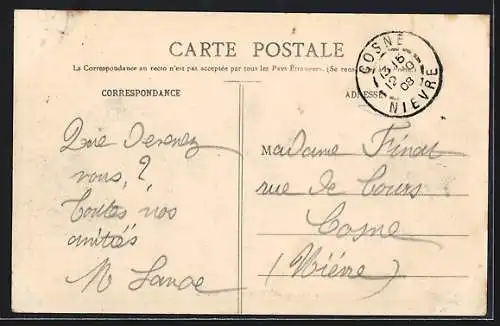 CARTE POSTALE
La Correspondance au recto n'est pas acceptée par tous les Pays Étrangers. (Se
COSNE
13-15
12-9
08
NIEVRE
CORRESPONDANCE
ADRESSE
Que devenez
vous, ?
Toutes nos
amitiés
M
Madame Finat
rue de Cours
Cosne
(Nièvre)